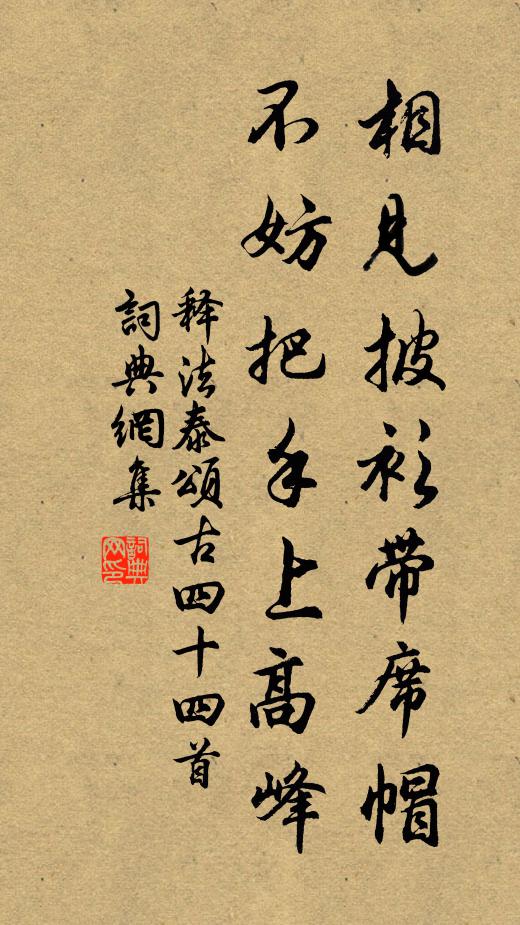 相見披衫带席帽
不妨把手上高峰
释法泰頌古四十四首
詞典網集
詞典网印